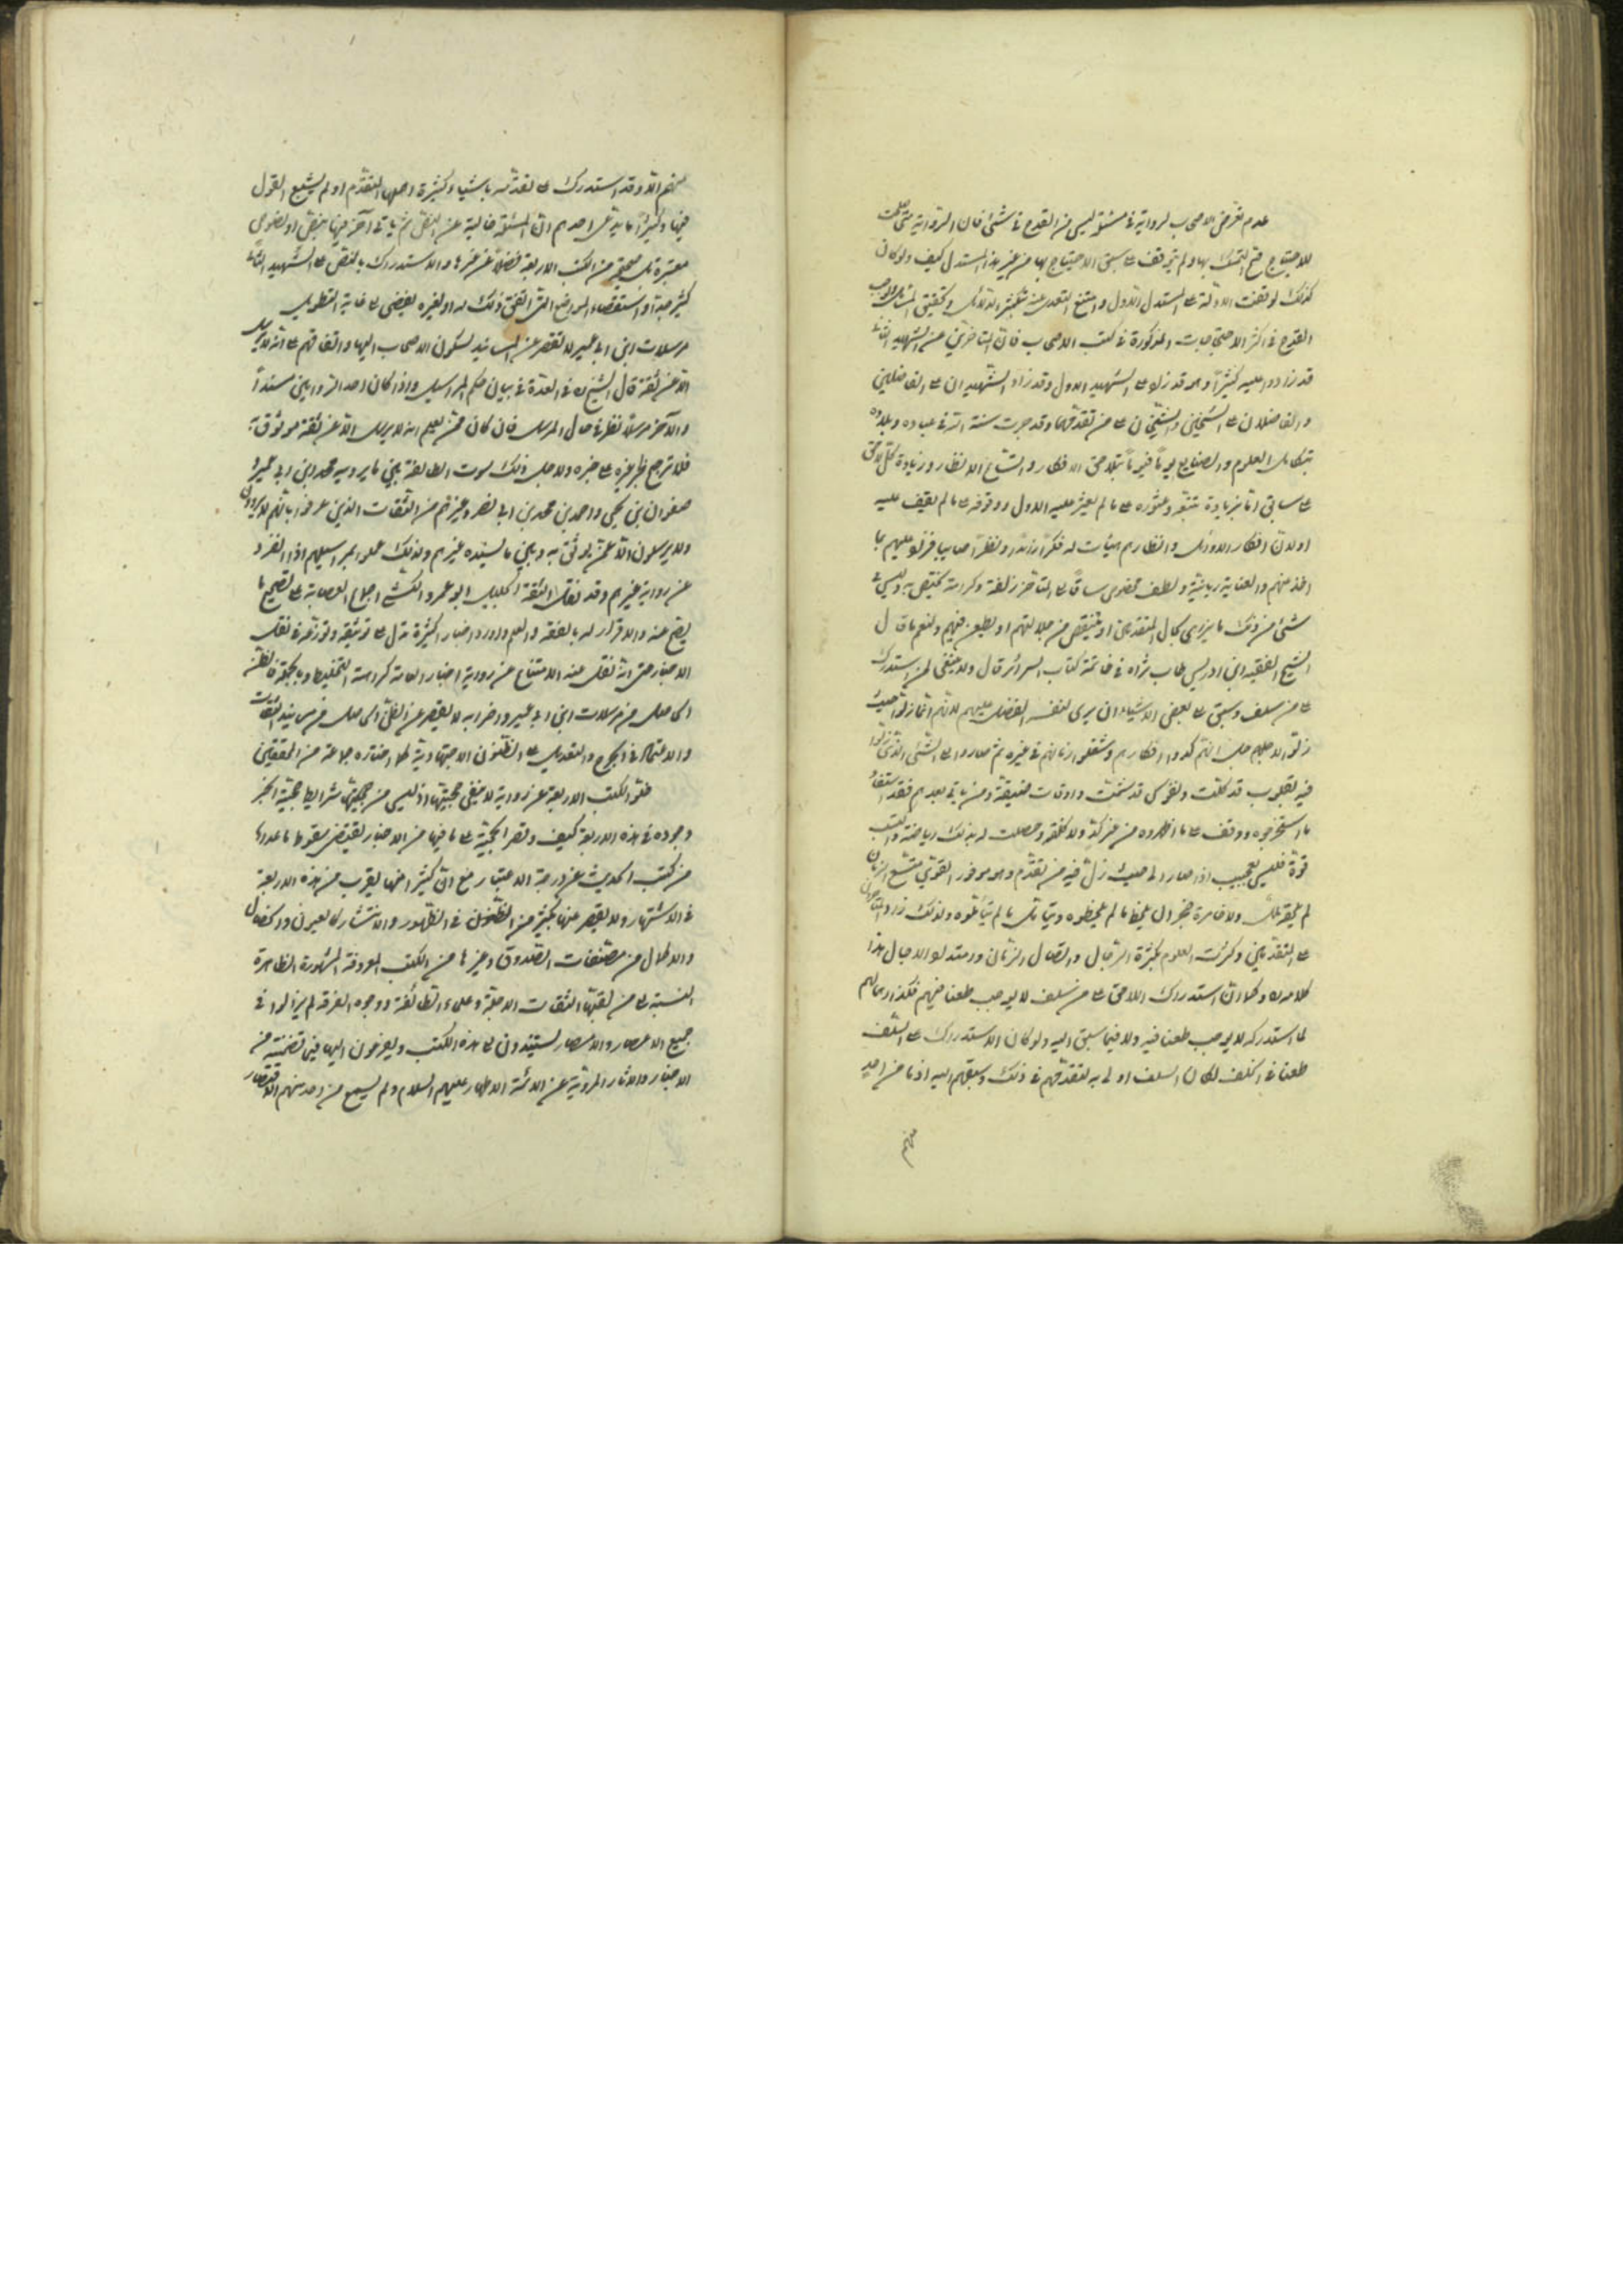 عدم تعرض الاصحاب لرواية في مسئلة ليس من القدح في شئ فان الرواية متى صلحت
للاحتجاج صح التمسك بها ولم يتوقف على سبق الاحتجاج بها من غير هذا المستدل كيف ولو كان
كذلك لوقفت الادلة على المستدل الاول وامتنع التعدى عنه بتكثير الدلائل وتحقيق المسائل ولوجب
القدح في اكثر الاحتجاجات المذكورة في كتب الاصحاب فان المتاخرين عن الشهيد الثانى
قد زادوا عليه كثيرا وهو قد زاد على الشهيد الاول وقد زاد الشهيدان على الفاضلين
والفاضلان على الشيخين والشيخان على من تقدمهما وقد جرت سنة الله في عباده وبلاده
بتكامل العلوم والصنايع يوما فيوما بتلاحق الافكار واتساع الانظار وزيادة كل لاحق
على سابق اما بزيادة تتبعه وعثوره على ما لم يعثر عليه الاول ووقوفه على ما لم يقف عليه
او لان افكار الاوائل وانظارهم هيأت له فكرا زائدا ونظرا صايبا فزاد عليهم بما
اخذ منهم والعناية ربانية ولطف مخصوص ساق الى المتاخر زلفة وكرامة تختص به وليس في
شئ من ذلك ما يزرى بكمال المتقدمين او ينتقص من جلالتهم او يطعن فيهم ولنعم ما قال
الشيخ الفقيه ابن ادريس طاب ثراه في خاتمة كتاب السرائر قال ولا ينبغى لمن استدرك
على من سلف وسبق على بعض الاشياء ان يرى لنفسه الفضل عليهم لانهم انما زلوا حيث
زلوا لاجل انهم كدوا افكارهم وشغلوا زمانهم في غيره ثم صاروا الى الشئ الذى زلوا
فيه بقلوب قد كلت ونفوس قد سئمت واوقات ضيقة ومن ياتى بعدهم فقد استفاد
ما استخرجوه ووقف على ما اظهروه من غير كد ولا كلفة وحصلت له بذلك رياضة واكتسب
قوة فليس بعجيب اذا صار الى حيث زل فيه من تقدم وهو موفور القوى متسع الزمان
لم يلحقه ملل ولا خامره ضجر ان يلحظ ما لم يلحظوه ويتامل ما لم يتاملوه ولذلك زاد المتاخرون
على المتقدمين وكثرت العلوم بكثرة الرجال واتصال الزمان وامتداد الاجال هذا
كلامه ره وكما ان استدراك اللاحق على من سلف لا يوجب طعنا فيهم فكذا اهمالهم
لما استدركه لا يوجب طعنا فيه ولا فيما سبق اليه ولو كان الاستدراك على السلف
طعنا في الخلف لكان السلف اولى به لتقدمهم في ذلك وسبقهم اليه اذ ما من احد
منهم
منهم الا وقد استدرك على تقدمه باشياء كثيرة اهملها المتقدم او لم يشبع القول
فيها وكثيرا ما يدعى احدهم ان المسئلة خالية عن النص ثم ياتى آخر فيها بنص او نصوص
معتبرة بل صحيحة من الكتب الاربعة فضلا عن غيرها والاستدراك بالنقض على الشهيد الثانى
كثير جدا واستقصاء المواضع التى اتفق ذلك له او لغيره يفضى الى غاية التطويل
مرسلات ابن ابى عمير لا تقصر عن المسانيد لسكون الاصحاب اليها واتفاقهم على انه لا يرسل
الا عن ثقة قال الشيخ ره في العدة في بيان حكم المراسيل واذا كان احد الراويين مسندا
والاخر مرسلا نظر في حال المرسل فان كان ممن يعلم انه لا يرسل الا عن ثقة موثوق به
فلا ترجيح لخبر غيره على خبره ولاجل ذلك سوت الطائفة بين ما يرويه محمد ابن ابى عمير و
صفوان بن يحيى واحمد بن محمد بن ابى نصر وغيرهم من الثقات الذين عرفوا بانهم لا يروون
ولا يرسلون الا عمن يوثق به وبين ما يسنده غيرهم ولذلك عملوا بمراسيلهم اذا انفرد
عن رواية غيرهم وقد نقل الثقة الجليل ابو عمرو الكشى اجماع العصابة على تصحيح ما
يصح عنه والاقرار له بالفقه والعلم واورد اخبار كثيرة تدل على توثيقه وتورعه في نقل
الاخبار حتى انه نقل عنه الامتناع عن رواية اخبار العامة كراهة التخليط وبالجملة فالظن
الحاصل من مرسلات ابن ابى عمير واضرابه لا يقصر عن الظن الحاصل من مسانيد الثقات
والاعتماد في الجرح والتعديل على الظنون الاجتهادية كما اختاره جماعة من المحققين
خلو الكتب الاربعة عن رواية لا ينفى حجيتها اذ ليس من حجيتها شرايط حجية الخبر
وجوده في هذه الاربعة كيف وقصر الحجية على ما فيها من الاخبار يقتضى سقوط ما عداها
من كتب الحديث عن درجة الاعتبار مع ان كثيرا منها يقرب من هذه الاربعة
في الاشتهار ولا يقصر عنها بكثير من الظنون في الظهور والانتشار كالعيون والخصال
والاكمال من مصنفات الصدوق وغيرها من الكتب المعروفة المشهورة الظاهرة
النسبة الى مصنفيها الثقات الاجلة وعلماء الطائفة ووجوه الفرقة لم يزالوا في
جميع الاعصار والامصار يستندون الى هذه الكتب ويفزعون اليها فيما تضمنته من
الاخبار والاثار المروية عن الائمة الاطهار عليهم السلام ولم يسمع من احد منهم الاقتصار